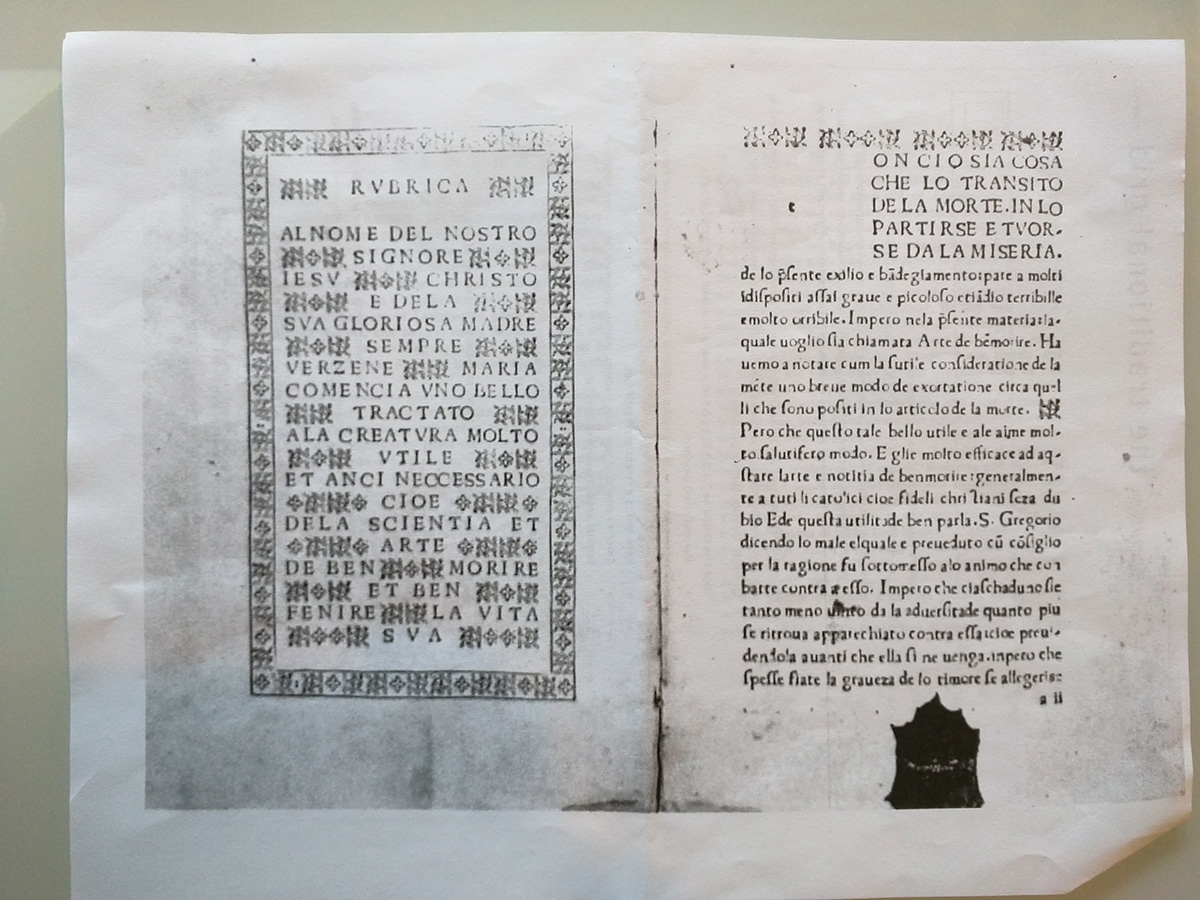 RVBRICA
ALNOME DEL NOSTRO
SIGNORE
IESV CHRISTO
E DELA
SVA GLORIOSA MADRE
SEMPRE
VERZENE MARIA
COMENCIA VNO BELLO
TRACTATO
ALA CREATVRA MOLTO
VTILE
ET ANCI NECCESSARIO
CIOE
DELA SCIENTIA ET
ARTE
DE BEN MORIRE
ET BEN
FENIRE LA VITA
SVA
c
ONCIOSIA COSA
CHE LO TRANSITO
DE LA MORTE.IN LO
PARTIRSE E TVOR-
SE DA LA MISERIA.
de lo p̃ſente exilio e bādegiamento:pare a molti
īdiſpoſiti aſſai graue e picoloſo etiādio terribille
e molto orribile. Impero nela p̃ſente materia:la-
quale uoglio ſia chiamata Arte de bēmorire. Ha
uemo a notare cum la ſutile conſideratione de la
mēte uno breue modo de exortatione circa quel
li che ſono poſiti in lo articolo de la morte.
Pero che queſto tale bello utile e ale aīme mol-
to ſalutifero modo. E glie molto efficace ad aq-
ſtare larte e notitia de benmorire:generalmen-
te a tuti li catolici cioe fideli chriſtiani ſeza du
bio Ede queſta utilitade ben parla. S. Gregorio
dicendo lo male elquale e preueduto cū cōſiglio
per la ragione fu ſottomeſſo alo animo che con
batte contra eſſo. Impero che ciaſchaduno ſie
tanto meno uinto da la aduerſitade quanto piu
ſe ritroua apparechiato contra eſſa:cioe preui-
dendola auanti che ella ſi ne uenga.inpero che
ſpeſſe fiate la graueza de lo timore ſe allegeriſe
a ii